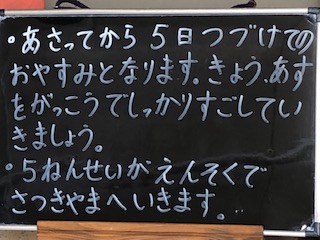 ・あさってから5日つづけての
おやすみとなります。きょう、あす
をがっこうでしっかりすごしてい
きましょう。
・5ねんせいがえんそくで
さつきやまへいきます。